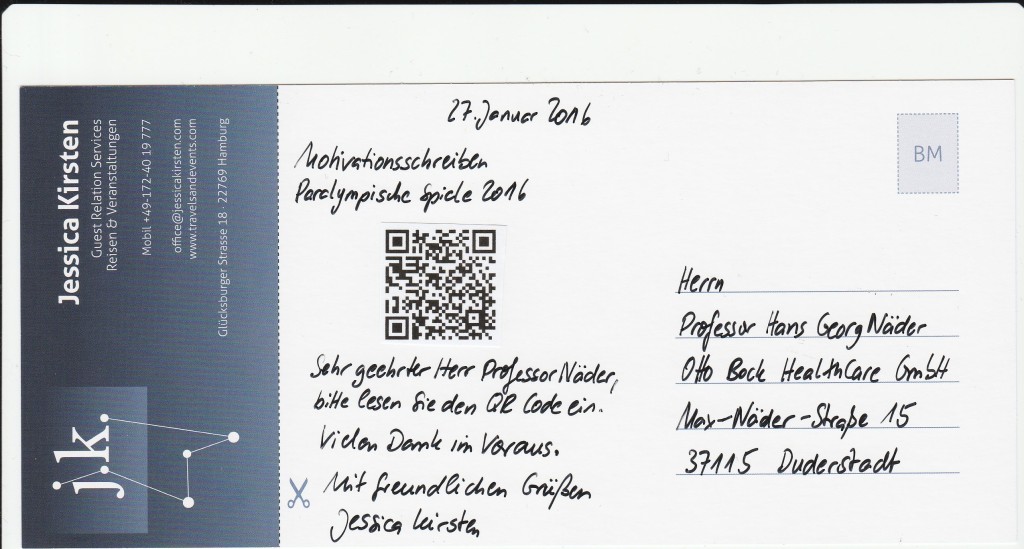 Jessica Kirsten
Guest Relation Services
Reisen & Veranstaltungen
Mobil +49-172-40 19 777
office@jessicakirsten.com
www.travelsandevents.com
Glücksburger Strasse 18 · 22769 Hamburg
j.k.
27. Januar 2016
Motivationsschreiben
Paralympische Spiele 2016
Sehr geehrter Herr Professor Näder,
bitte lesen Sie den QR Code ein.
Vielen Dank im Voraus.
Mit freundlichen Grüßen
Jessica Kirsten
BM
Herrn
Professor Hans Georg Näder
Otto Bock HealthCare GmbH
Max-Näder-Straße 15
37115 Duderstadt